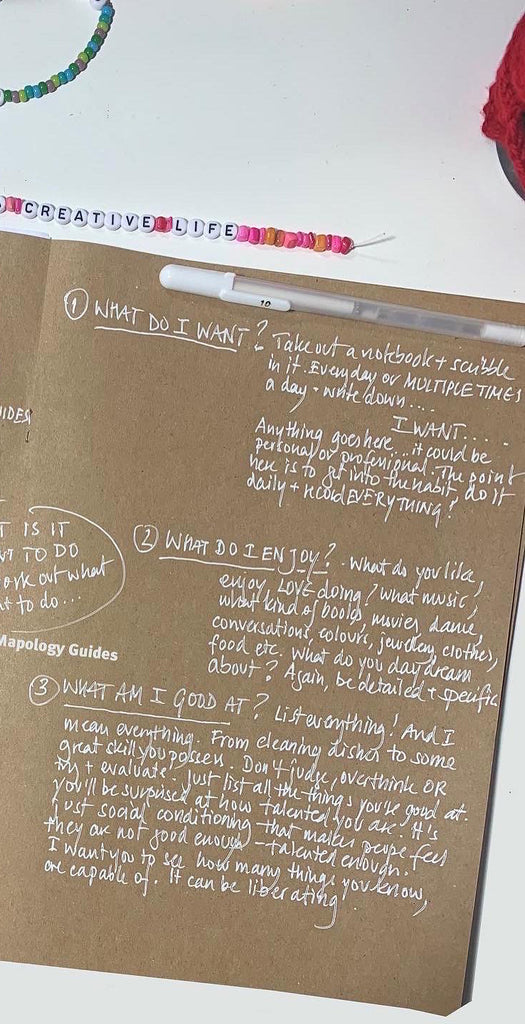 CREATIVE LIFE
10
① WHAT DO I WANT? Take out a notebook + scribble
in it. Everyday or MULTIPLE TIMES
a day + write down....
I WANT.....
Anything goes here... it could be
personal or professional. The point
here is to get into the habit, do it
daily + record EVERYTHING!
IDES
T IS IT
NT TO DO
ork out what
t to do...
Mapology Guides
② WHAT DO I ENJOY? What do you like,
enjoy, LOVE doing? What music,
what kind of books, movies, dance,
conversations, colours, jewellery, clothes,
food etc. What do you daydream
about? Again, be detailed + specific
③ WHAT AM I GOOD AT? List everything! And I
mean everything. From cleaning dishes to some
great skill you possess. Don't judge, overthink OR
try + evaluate. Just list all the things you're good at.
You'll be surprised at how talented you are. It's
just social conditioning that makes people feel
they are not good enough – talented enough.
I want you to see how many things you know,
are capable of. It can be liberating